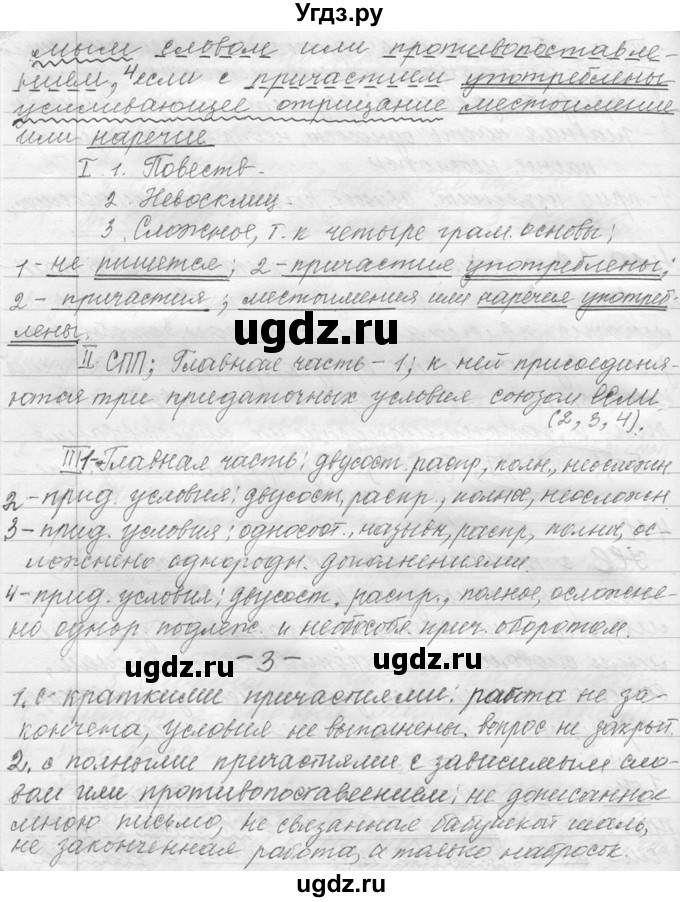 Угдз.ру
мым словом или противопоставле-
нием, ⁴если с причастием употреблены
усиливающее отрицание местоимение
или наречие
I. 1. Повеств.
2. Невосклиц.
3. Сложное, т. к четыре грам. основы;
1- не пишется; 2- причастия употреблены;
2 - причастия; местоимения или наречия употреб-
лены.
ugdz.ru
II СПП; Главная часть - 1; к ней присоединя-
ются три придаточных условия союзом если
(2, 3, 4).
III 1- Главная часть: двусост. распр, полн., неосложн.
2 - прид. условия: двусост, распр., полное, неосложн.
3 - прид. условия; односост., назывн, распр, полно, ос-
ложнено однородн. дополнениями.
4 - прид. условия; двусост. распр., полное, осложне-
но однор. подлеж. и необособл. прич. оборотом.
ugdz.ru
- 3 -
ugdz.ru
1. с краткими причастиями: работа не за-
кончена, условия не выполнены. вопрос не закрыт.
2. с полными причастиями с зависимым сло-
вом или противопоставлением: не дописанное
мною письмо, не связанная бабушкой шаль,
не законченная работа, а только набросок.
ugdz.ru